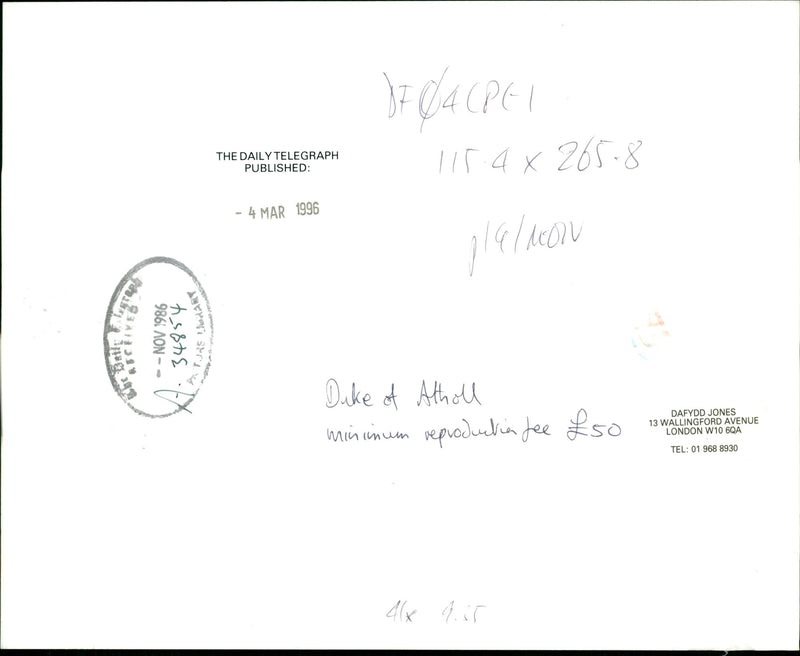 115.4 x 265.8
THE DAILY TELEGRAPH
PUBLISHED:
- 4 MAR 1996
RECEIVED
- - NOV 1986
A. 34854
PICTURE LIBRARY
Duke of Atholl
minimum reproduction fee £50
DAFYDD JONES
13 WALLINGFORD AVENUE
LONDON W10 6QA
TEL: 01 968 8930